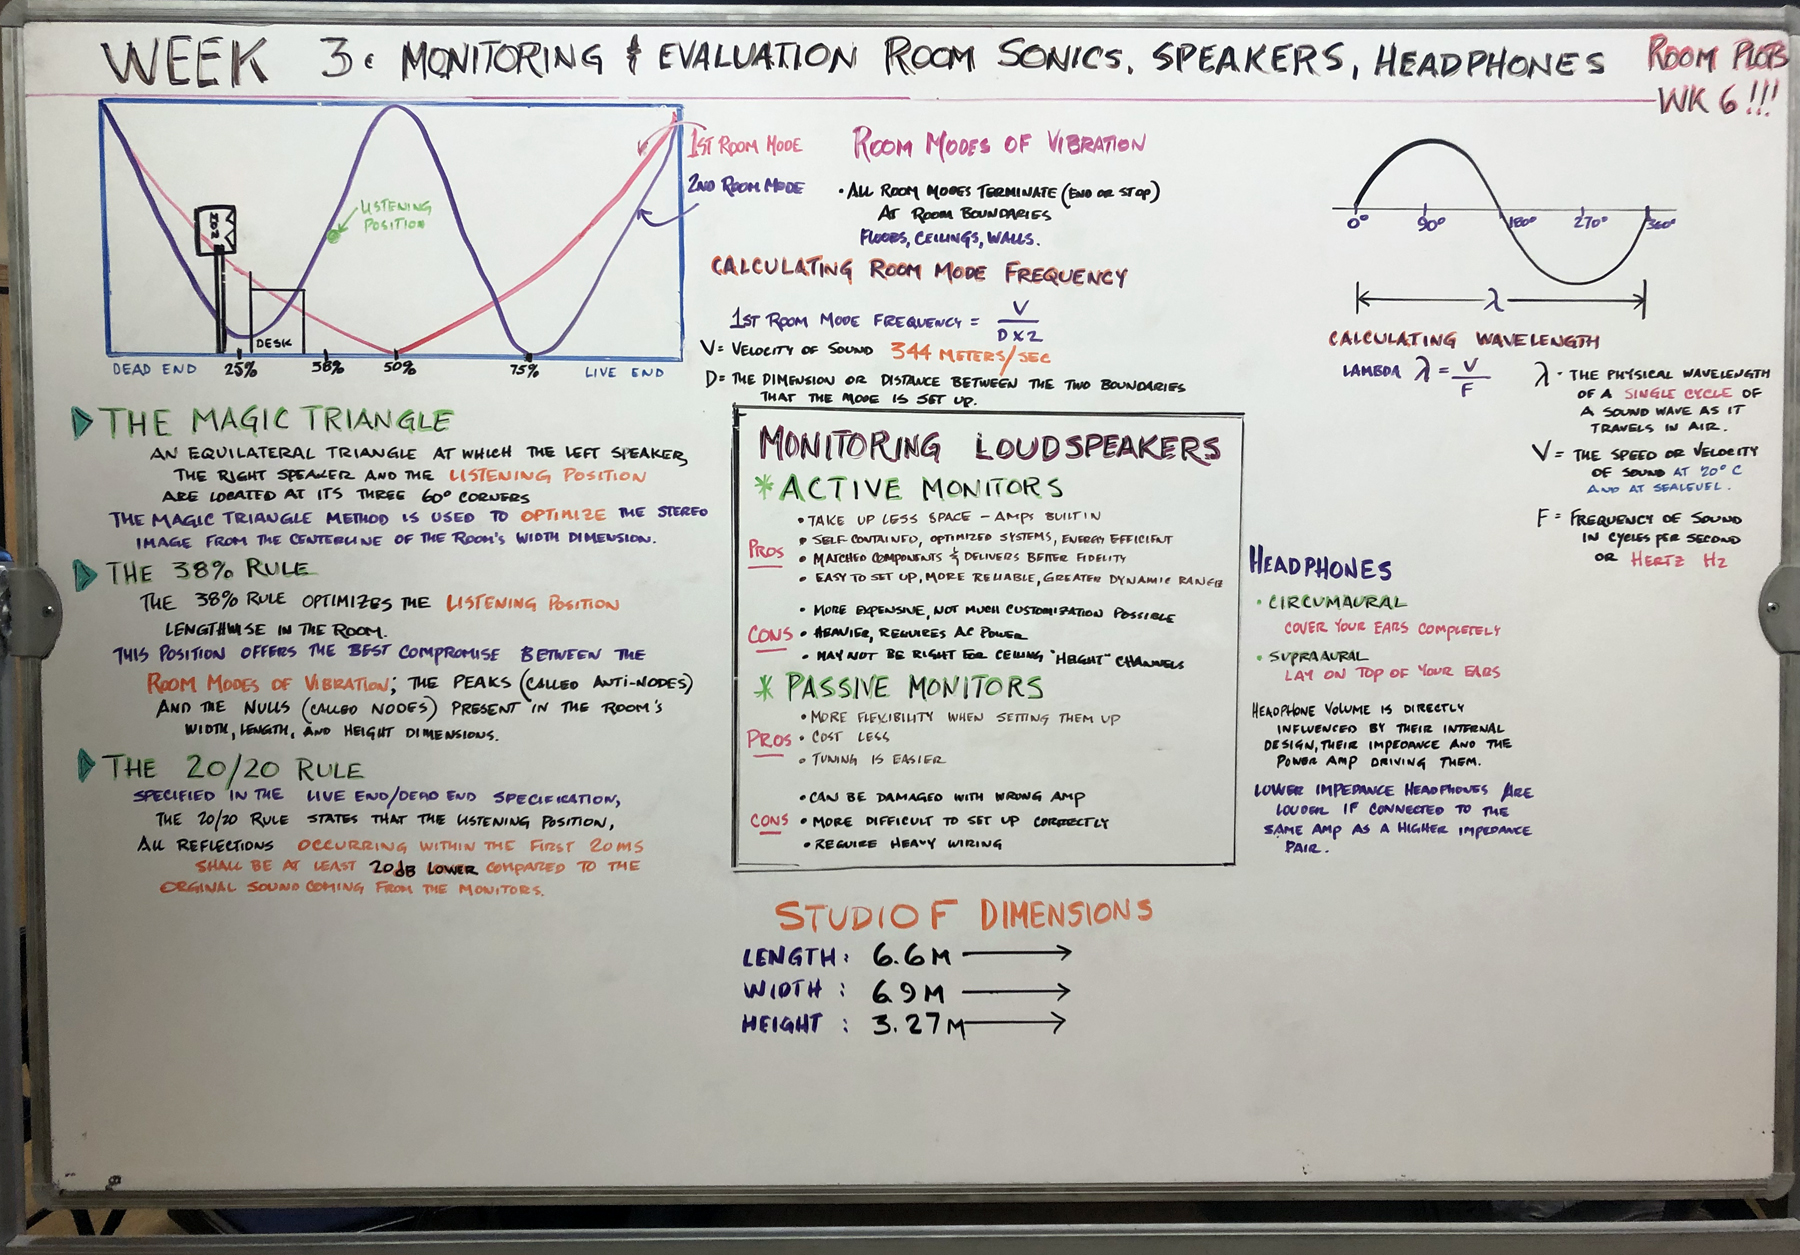 WEEK 3: MONITORING & EVALUATION ROOM SONICS, SPEAKERS, HEADPHONES
ROOM PLOTS
WK 6!!!
1ST ROOM MODE
2ND ROOM MODE
LISTENING
POSITION
DESK
DEAD END
25%
38%
50%
75%
LIVE END
ROOM MODES OF VIBRATION
• ALL ROOM MODES TERMINATE (END OR STOP)
AT ROOM BOUNDARIES
FLOORS, CEILINGS, WALLS.
CALCULATING ROOM MODE FREQUENCY
1ST ROOM MODE FREQUENCY = V
D X 2
V = VELOCITY OF SOUND 344 METERS/SEC
D = THE DIMENSION OR DISTANCE BETWEEN THE TWO BOUNDARIES
THAT THE MODE IS SET UP.
0° 90° 180° 270° 360°
λ
CALCULATING WAVELENGTH
LAMBDA λ = V
F
λ - THE PHYSICAL WAVELENGTH
OF A SINGLE CYCLE OF
A SOUND WAVE AS IT
TRAVELS IN AIR.
V = THE SPEED OR VELOCITY
OF SOUND AT 20° C
AND AT SEALEVEL.
F = FREQUENCY OF SOUND
IN CYCLES PER SECOND
OR HERTZ HZ
THE MAGIC TRIANGLE
AN EQUILATERAL TRIANGLE AT WHICH THE LEFT SPEAKER,
THE RIGHT SPEAKER AND THE LISTENING POSITION
ARE LOCATED AT ITS THREE 60° CORNERS
THE MAGIC TRIANGLE METHOD IS USED TO OPTIMIZE THE STEREO
IMAGE FROM THE CENTERLINE OF THE ROOM'S WIDTH DIMENSION.
THE 38% RULE
THE 38% RULE OPTIMIZES THE LISTENING POSITION
LENGTHWISE IN THE ROOM.
THIS POSITION OFFERS THE BEST COMPROMISE BETWEEN THE
ROOM MODES OF VIBRATION; THE PEAKS (CALLED ANTI-NODES)
AND THE NULLS (CALLED NODES) PRESENT IN THE ROOM'S
WIDTH, LENGTH, AND HEIGHT DIMENSIONS.
THE 20/20 RULE
SPECIFIED IN THE LIVE END/DEAD END SPECIFICATION,
THE 20/20 RULE STATES THAT THE LISTENING POSITION,
ALL REFLECTIONS OCCURRING WITHIN THE FIRST 20MS
SHALL BE AT LEAST 20dB LOWER COMPARED TO THE
ORGINAL SOUND COMING FROM THE MONITORS.
MONITORING LOUDSPEAKERS
* ACTIVE MONITORS
PROS
• TAKE UP LESS SPACE - AMPS BUILT IN
• SELF-CONTAINED, OPTIMIZED SYSTEMS, ENERGY EFFICIENT
• MATCHED COMPONENTS & DELIVERS BETTER FIDELITY
• EASY TO SET UP, MORE RELIABLE, GREATER DYNAMIC RANGE
CONS
• MORE EXPENSIVE, NOT MUCH CUSTOMIZATION POSSIBLE
• HEAVIER, REQUIRES AC POWER
• MAY NOT BE RIGHT FOR CEILING "HEIGHT" CHANNELS
* PASSIVE MONITORS
PROS
• MORE FLEXIBILITY WHEN SETTING THEM UP
• COST LESS
• TUNING IS EASIER
CONS
• CAN BE DAMAGED WITH WRONG AMP
• MORE DIFFICULT TO SET UP CORRECTLY
• REQUIRE HEAVY WIRING
HEADPHONES
• CIRCUMAURAL
COVER YOUR EARS COMPLETELY
• SUPRAAURAL
LAY ON TOP OF YOUR EARS
HEADPHONE VOLUME IS DIRECTLY
INFLUENCED BY THEIR INTERNAL
DESIGN, THEIR IMPEDANCE AND THE
POWER AMP DRIVING THEM.
LOWER IMPEDANCE HEADPHONES ARE
LOUDER IF CONNECTED TO THE
SAME AMP AS A HIGHER IMPEDANCE
PAIR.
STUDIO F DIMENSIONS
LENGTH: 6.6M
WIDTH : 6.9M
HEIGHT : 3.27M